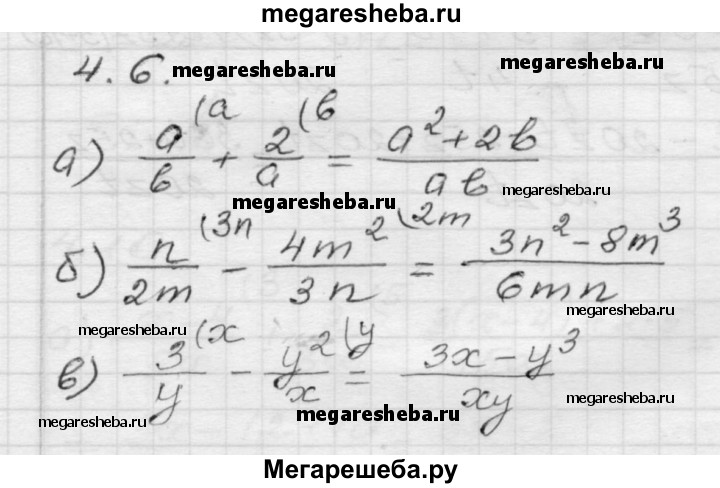 megaresheba.ru
4.6. megaresheba.ru megaresheba.ru
а) a/b (a + 2/a (b = (a² + 2b)/(ab)
megaresheba.ru megaresheba.ru
б) n/(2m) (3n − 4m²/(3n) (2m = (3n² − 8m³)/(6mn)
megaresheba.ru megaresheba.ru
в) 3/y (x − y²/x (y = (3x − y³)/(xy)
megaresheba.ru megaresheba.ru megaresheba.ru
Мегарешеба.ру